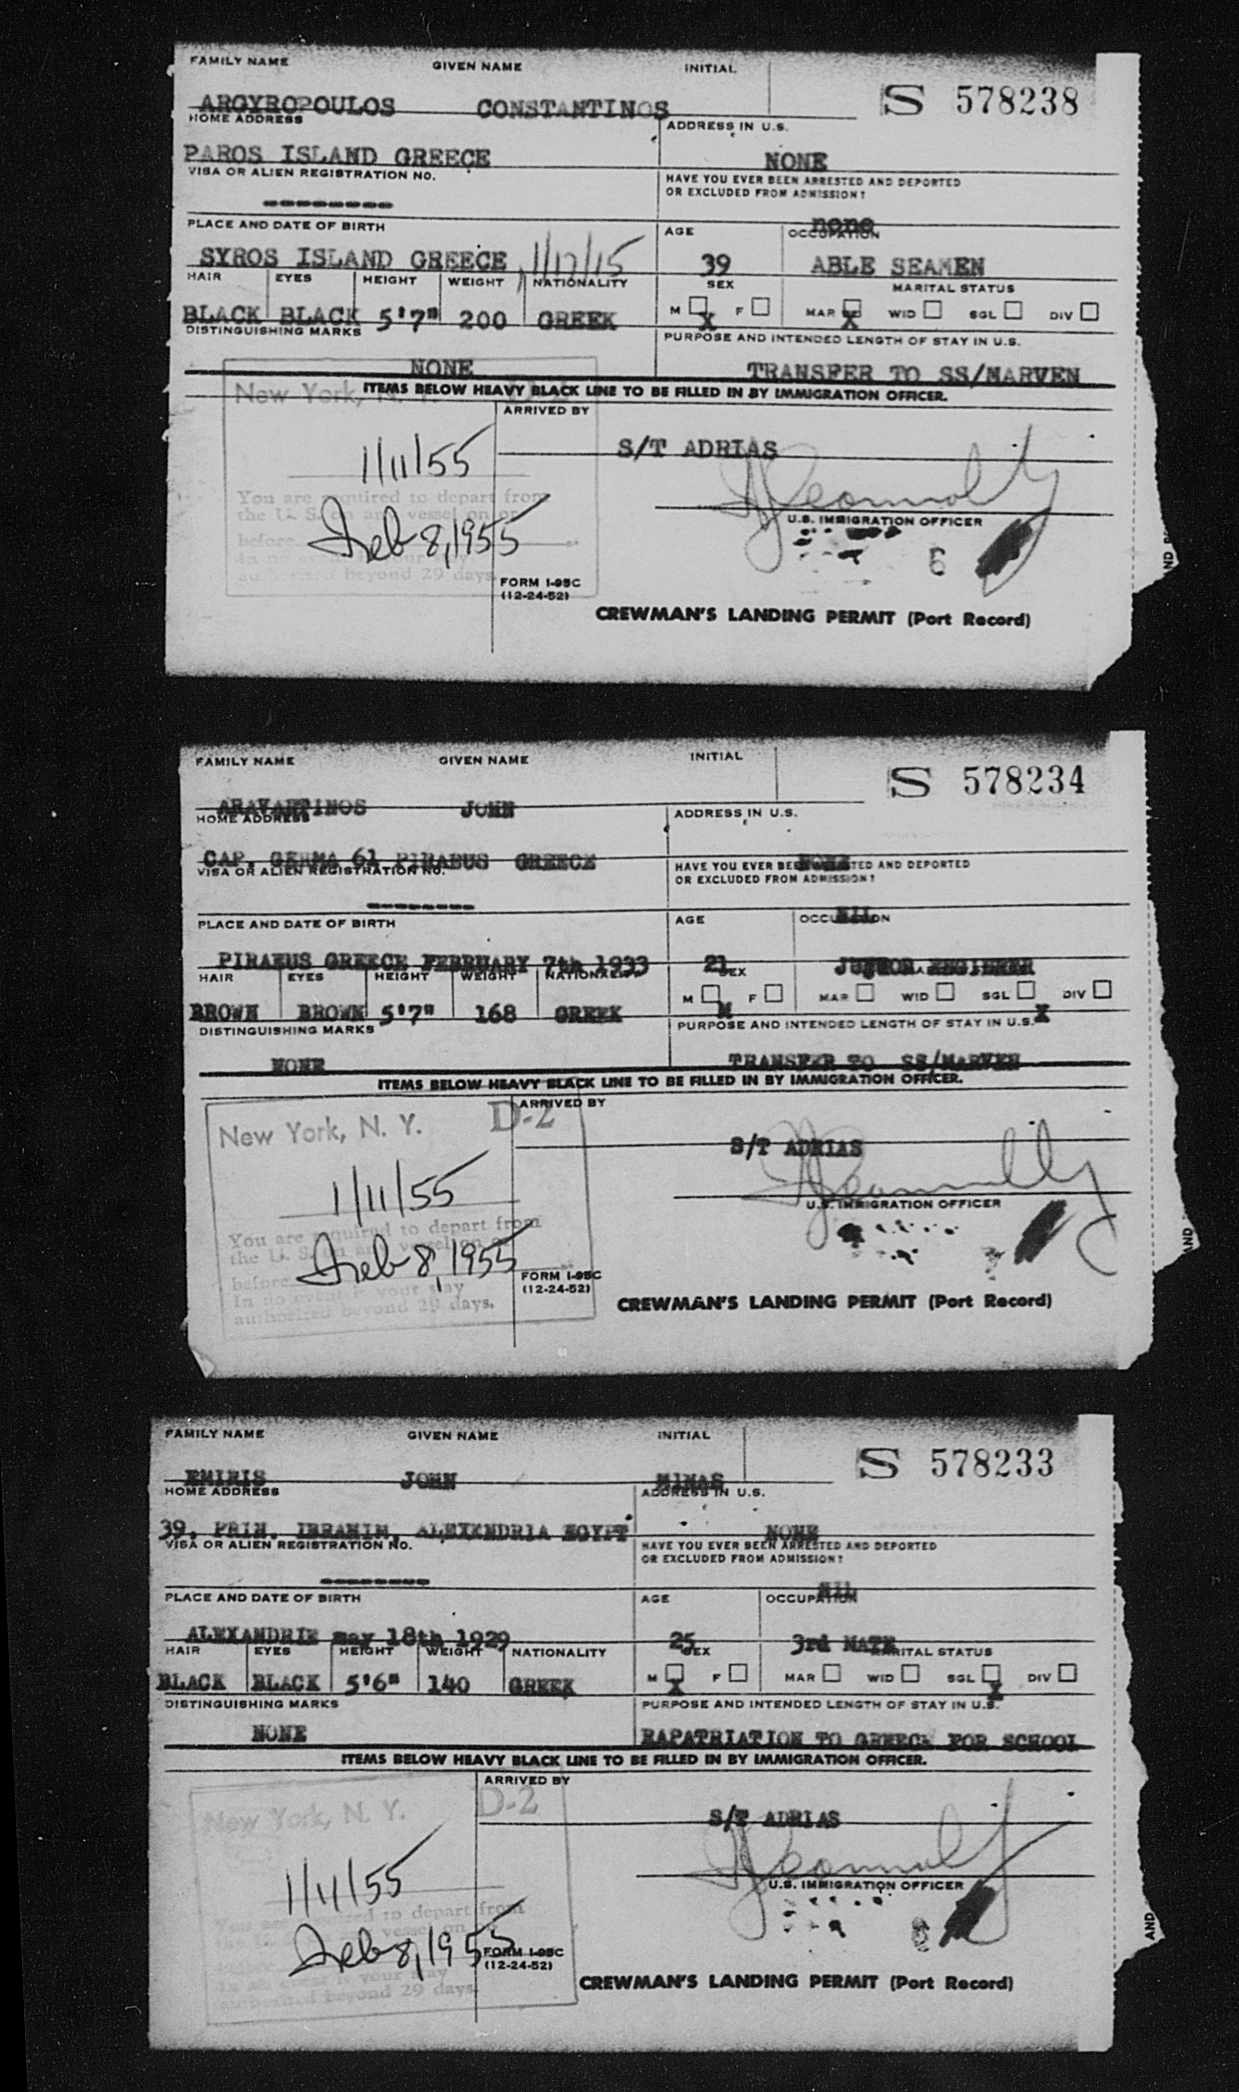 FAMILY NAME GIVEN NAME INITIAL
S 578238
ARGYROPOULOS CONSTANTINOS
HOME ADDRESS ADDRESS IN U.S.
PAROS ISLAND GREECE NONE
VISA OR ALIEN REGISTRATION NO. HAVE YOU EVER BEEN ARRESTED AND DEPORTED
OR EXCLUDED FROM ADMISSION?
--------
none
PLACE AND DATE OF BIRTH AGE OCCUPATION
SYROS ISLAND GREECE, 1/17/15 39 ABLE SEAMEN
HAIR EYES HEIGHT WEIGHT NATIONALITY SEX MARITAL STATUS
M F MAR WID SGL DIV
BLACK BLACK 5'7" 200 GREEK X X
DISTINGUISHING MARKS PURPOSE AND INTENDED LENGTH OF STAY IN U.S.
NONE TRANSFER TO SS/MARVEN
ITEMS BELOW HEAVY BLACK LINE TO BE FILLED IN BY IMMIGRATION OFFICER.
New York, N. Y.
ARRIVED BY
1/11/55 S/T ADRIAS
You are required to depart from
the U. S. on any vessel on or
before
Feb 8, 1955
U.S. IMMIGRATION OFFICER
6
authorized beyond 29 days.
FORM I-95C
(12-24-52)
CREWMAN'S LANDING PERMIT (Port Record)
AND
FAMILY NAME GIVEN NAME INITIAL
S 578234
ARAVANTINOS JOHN
HOME ADDRESS ADDRESS IN U.S.
CAP. GERMA 61 PIRAEUS GREECE NONE
VISA OR ALIEN REGISTRATION NO. HAVE YOU EVER BEEN ARRESTED AND DEPORTED
OR EXCLUDED FROM ADMISSION?
--------
NIL
PLACE AND DATE OF BIRTH AGE OCCUPATION
PIRAEUS GREECE FEBRUARY 7th 1933 21 JUNIOR ENGINEER
HAIR EYES HEIGHT WEIGHT NATIONALITY SEX
M F MAR WID SGL DIV
BROWN BROWN 5'7" 168 GREEK M X
DISTINGUISHING MARKS PURPOSE AND INTENDED LENGTH OF STAY IN U.S.
NONE TRANSFER TO SS/MARVEN
ITEMS BELOW HEAVY BLACK LINE TO BE FILLED IN BY IMMIGRATION OFFICER.
New York, N. Y. D-2
ARRIVED BY
S/T ADRIAS
1/11/55
You are required to depart from
the U. S. on any vessel on or
before
Feb 8, 1955
In no event is your stay
authorized beyond 29 days.
U.S. IMMIGRATION OFFICER
FORM I-95C
(12-24-52)
CREWMAN'S LANDING PERMIT (Port Record)
AND
FAMILY NAME GIVEN NAME INITIAL
S 578233
EMIRIS JOHN MINAS
HOME ADDRESS ADDRESS IN U.S.
39, PRIN. IBRAHIM, ALEXENDRIA EGYPT NONE
VISA OR ALIEN REGISTRATION NO. HAVE YOU EVER BEEN ARRESTED AND DEPORTED
OR EXCLUDED FROM ADMISSION?
--------
NIL
PLACE AND DATE OF BIRTH AGE OCCUPATION
ALEXANDRIE may 18th 1929 25 3rd MATE
HAIR EYES HEIGHT WEIGHT NATIONALITY SEX MARITAL STATUS
M F MAR WID SGL DIV
BLACK BLACK 5'6" 140 GREEK X X
DISTINGUISHING MARKS PURPOSE AND INTENDED LENGTH OF STAY IN U.S.
NONE RAPATRIATION TO GREECE FOR SCHOOL
ITEMS BELOW HEAVY BLACK LINE TO BE FILLED IN BY IMMIGRATION OFFICER.
New York, N. Y. D-2
ARRIVED BY
S/T ADRIAS
1/11/55
You are required to depart from
Feb 8, 1955
In no event is your stay
authorized beyond 29 days.
U.S. IMMIGRATION OFFICER
FORM I-95C
(12-24-52)
CREWMAN'S LANDING PERMIT (Port Record)
AND